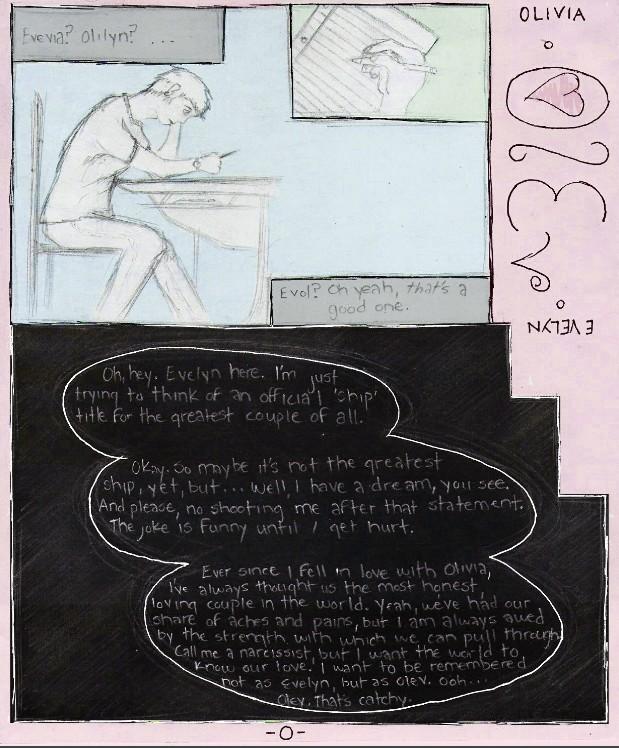 Evevia? Olilyn? ...
OLIVIA
Evol? Oh yeah, that's a
good one.
EVELYN
Oh, hey. Evelyn here. I'm just
trying to think of an official 'ship'
title for the greatest couple of all.
Okay. So maybe it's not the greatest
ship, yet, but... well, I have a dream, you see.
And please, no shooting me after that statement.
The joke is funny until I get hurt.
Ever since I fell in love with Olivia,
I've always thought us the most honest,
loving couple in the world. Yeah, we've had our
share of aches and pains, but I am always awed
by the strength with which we can pull through.
Call me a narcissist, but I want the world to
know our love. I want to be remembered
not as Evelyn, but as Olev. Ooh...
Olev. That's catchy.
-0-